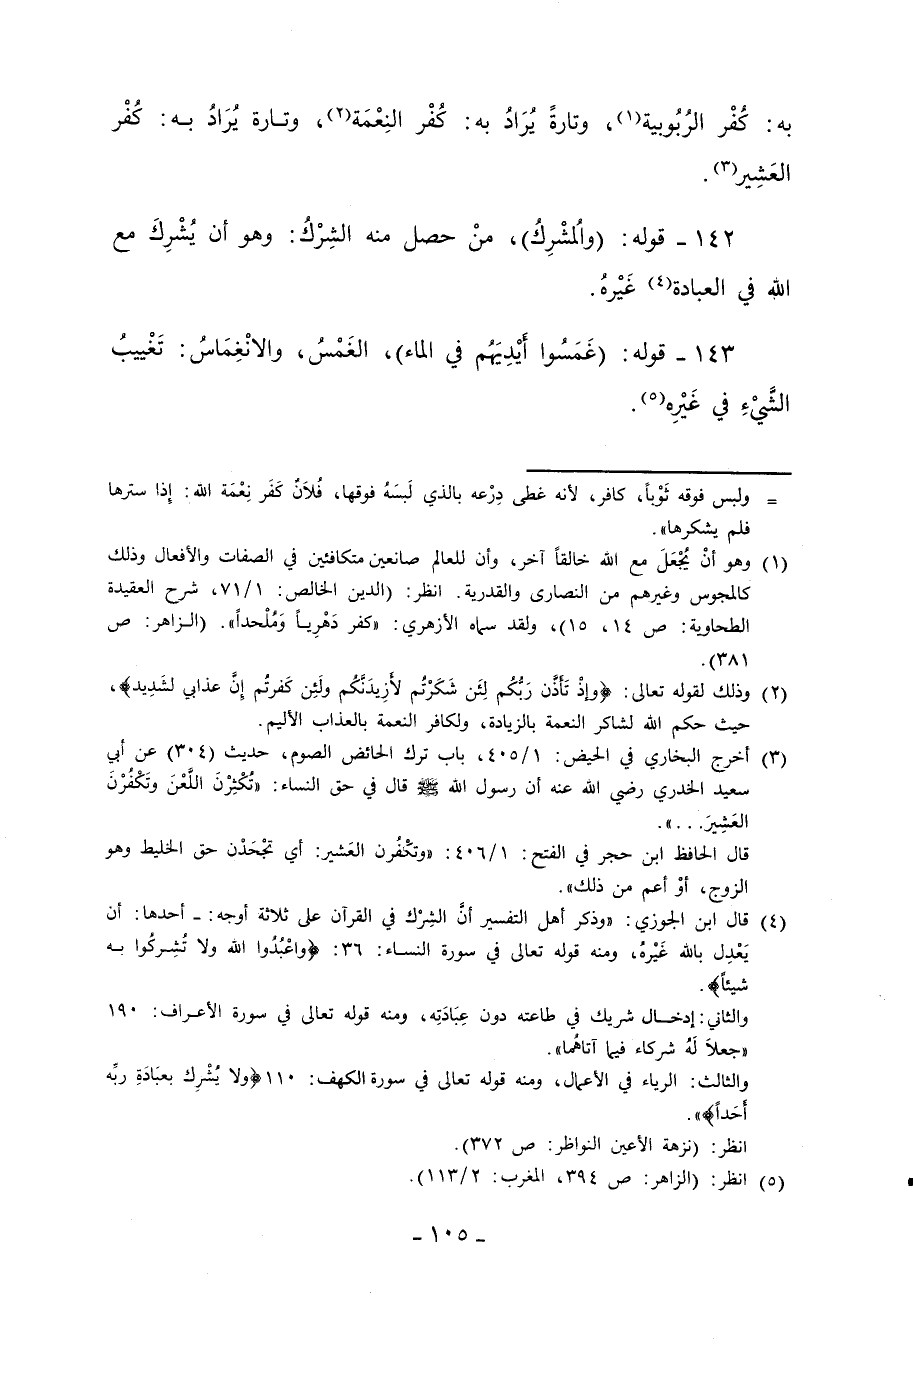 به: كُفْر الرُبُوبية(١)، وتارةً يُرَادُ به: كُفْر النِعْمَة(٢)، وتارة يُرَادُ به: كُفْر
العَشِير(٣).
١٤٢ ـ قوله: (والُمشْرِكُ)، منْ حصل منه الشِرْكُ: وهو أن يُشْرِكَ مع
الله في العبادة(٤) غَيْرهُ.
١٤٣ ـ قوله: (غَمَسُوا أَيْدِيَهُم في الماء)، الغَمْسُ، والانْغِمَاسُ: تَغْييبُ
الشَّيْءِ في غَيْرِه(٥).
= ولبس فوقه ثَوْباً، كافر، لأنه غطى دِرْعه بالذي لَبَسَهُ فوقها، فُلاَنٌ كَفَر نِعْمَة الله: إذا سترها
فلم يشكرها».
(١) وهو أنْ يُجْعَلَ مع الله خالقاً آخر، وأن للعالم صانعين متكافئين في الصفات والأفعال وذلك
كالمجوس وغيرهم من النصارى والقدرية. انظر: (الدين الخالص: ٧١/١، شرح العقيدة
الطحاوية: ص ١٤، ١٥)، ولقد سماه الأزهري: «كفر دَهْرِياً وَمُلْحداً». (الزاهر: ص
٣٨١).
(٢) وذلك لقوله تعالى: ﴿وإذْ تَأَذَّن رَبُّكُم لئِن شَكَرْتُم لأَزِيدَنَّكُم ولَئِن كَفرتُم إنَّ عذابي لشَدِيد﴾،
حيث حكم الله لشاكر النعمة بالزيادة، ولكافر النعمة بالعذاب الأليم.
(٣) أخرج البخاري في الحيض: ٤٠٥/١، باب ترك الحائض الصوم، حديث (٣٠٤) عن أبي
سعيد الخدري رضي الله عنه أن رسول الله ﷺ قال في حق النساء: «تُكْثِرْنَ اللَّعْنَ وتَكْفُرْنَ
العَشِيرَ...».
قال الحافظ ابن حجر في الفتح: ٤٠٦/١: «وتَكْفُرن العَشير: أي تجْحَدْن حق الخليط وهو
الزوج، أوْ أعم من ذلك».
(٤) قال ابن الجوزي: «وذكر أهل التفسير أنَّ الشِرْك في القرآن على ثلاثة أوجه: ـ أحدها: أن
يَعْدِل بالله غَيْرهُ، ومنه قوله تعالى في سورة النساء: ٣٦: ﴿واعْبُدُوا الله ولا تُشِركُوا به
شيئاً﴾.
والثاني: إدخال شريك في طاعته دون عِبَادَتِه، ومنه قوله تعالى في سورة الأعراف: ١٩٠
«جعلاَ لَهُ شركاء فيما آتاهُما».
والثالث: الرياء في الأعمال، ومنه قوله تعالى في سورة الكهف: ١١٠ ﴿ولا يُشْرِك بعبَادَةِ ربِّه
أَحَداً﴾».
انظر: (نزهة الأعين النواظر: ص ٣٧٢).
(٥) انظر: (الزاهر: ص ٣٩٤، المغرب: ١١٣/٢).
ـ ١٠٥ ـ